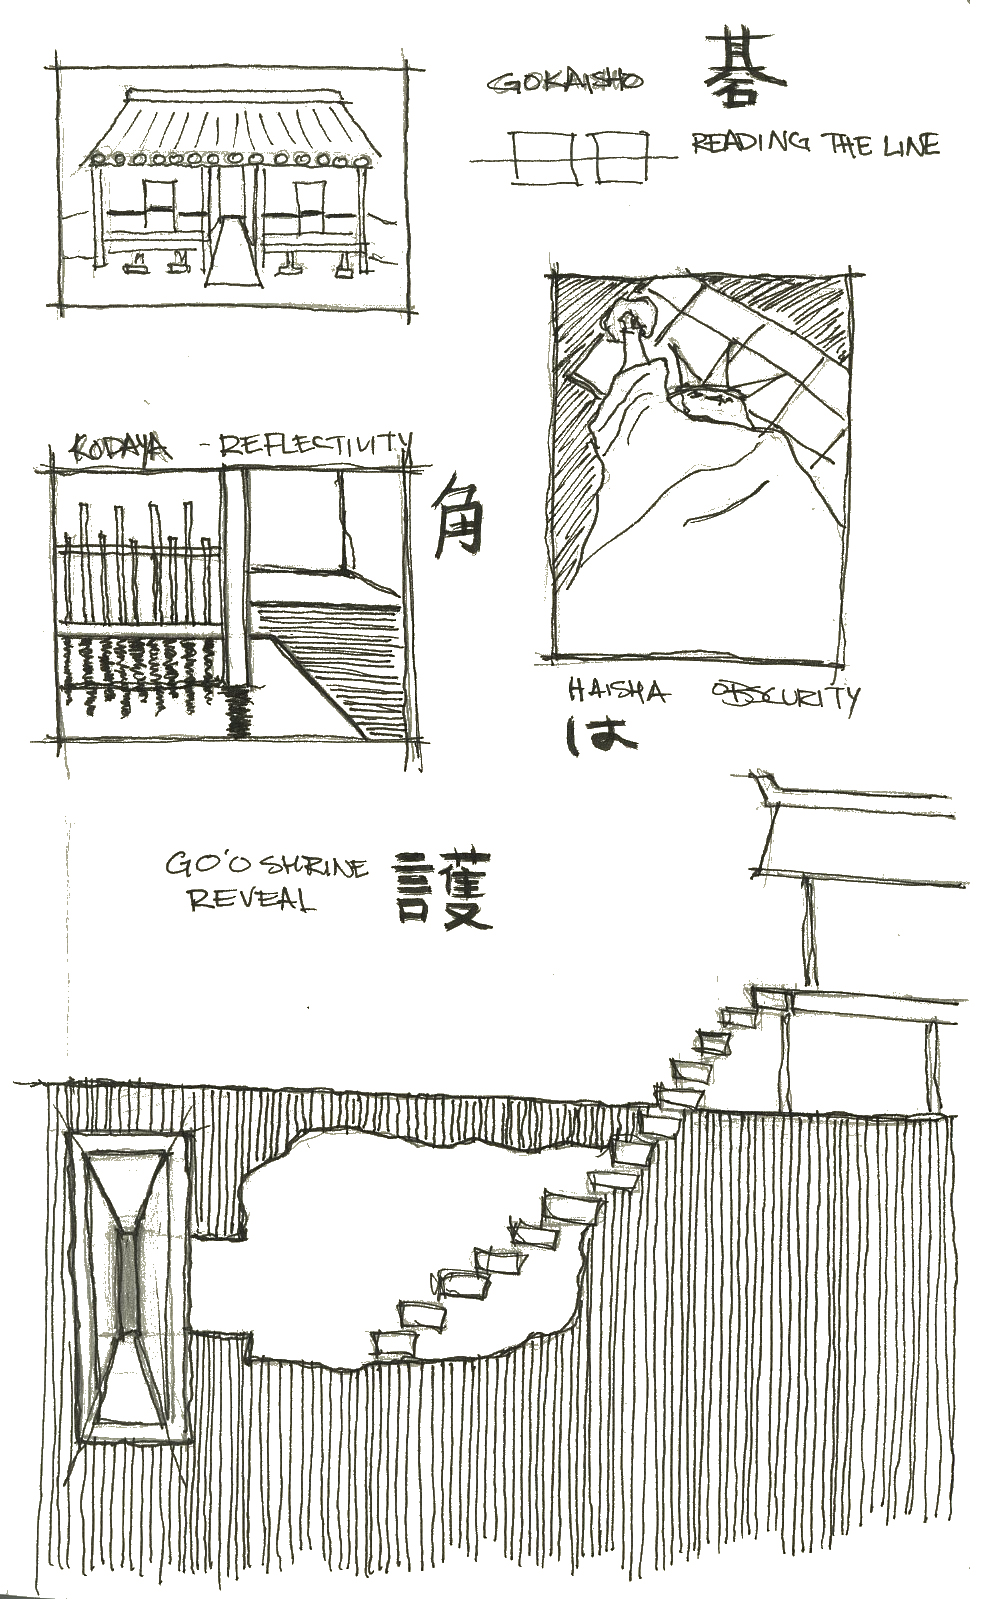 GOKAISHO 碁
READING THE LINE
KODAYA - REFLECTIVITY
角
HAISHA OBSCURITY
は
GO'O SHRINE 護
REVEAL